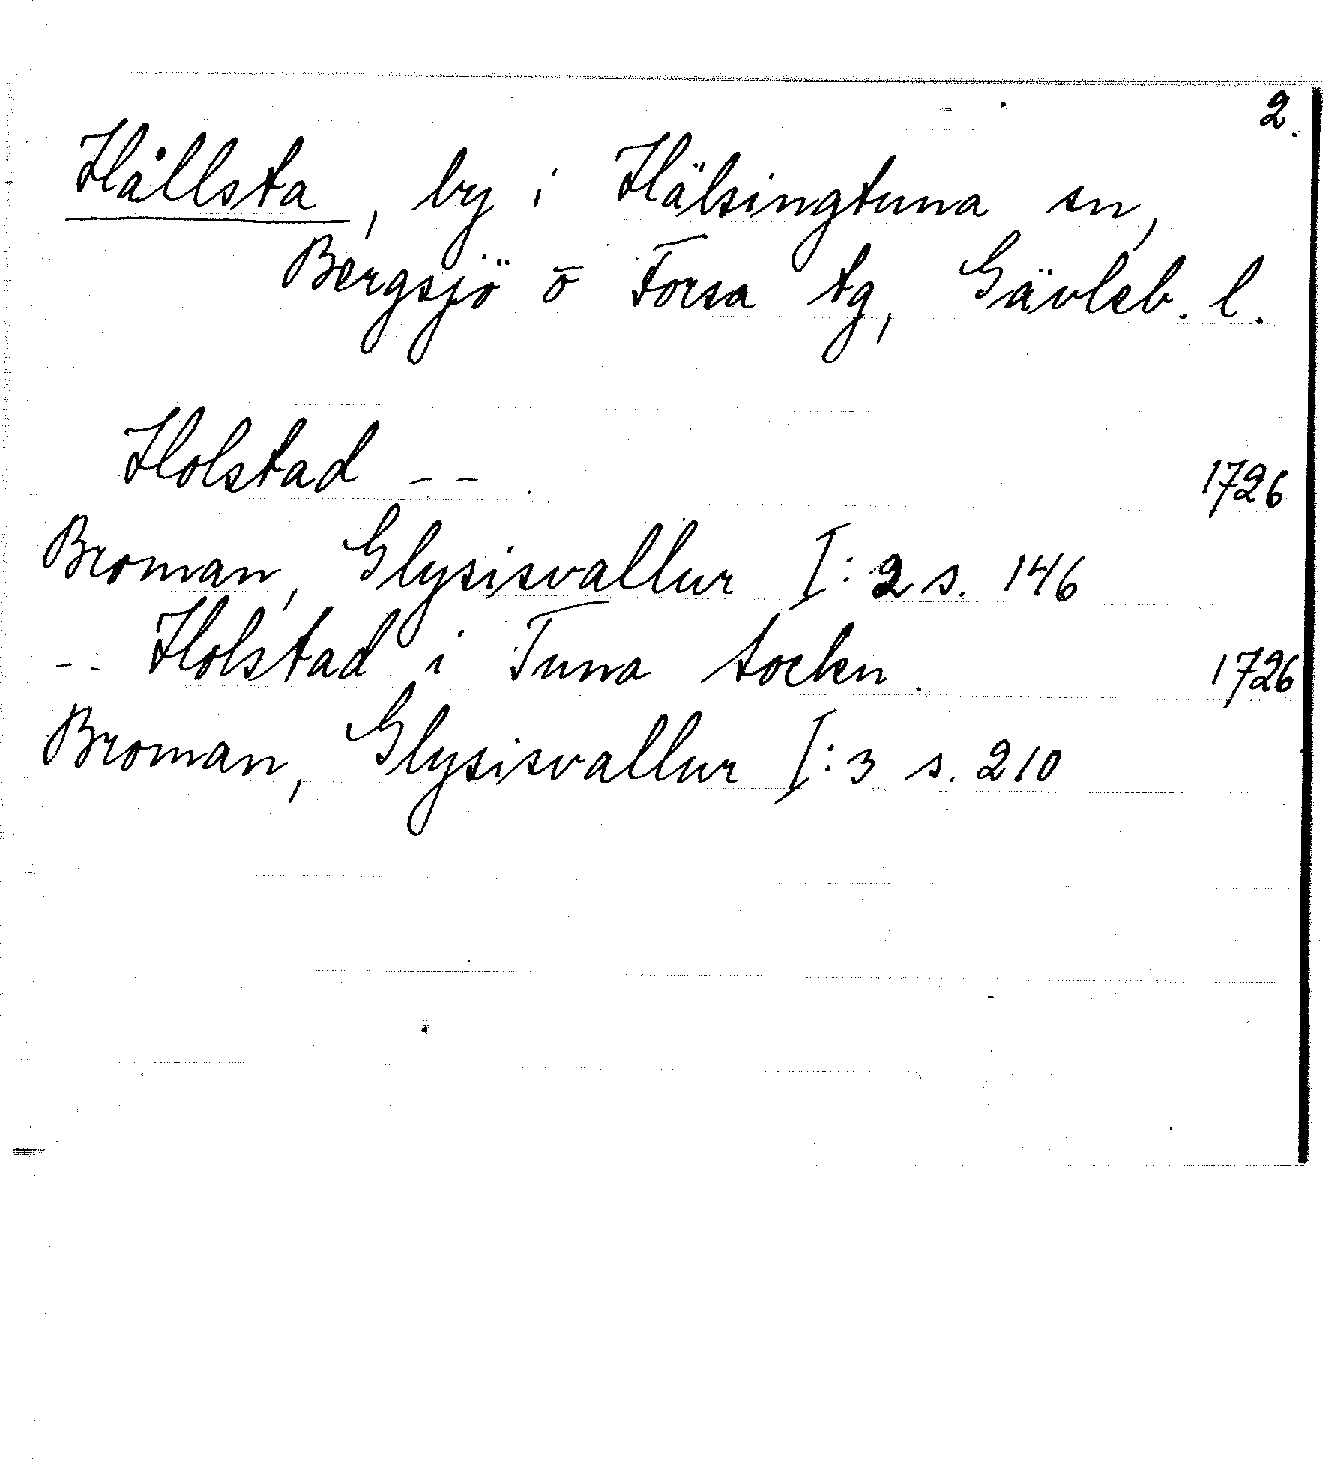 2.
Hållsta, by i Hälsingtuna sn,
Bergsjö o Forsa tg, Gävleb. l.
Holstad -- . 1726
Broman, Glysisvallur I:2 s. 146
-- Holstad i Tuna Socken. 1726
Broman, Glysisvallur I:3 s. 210